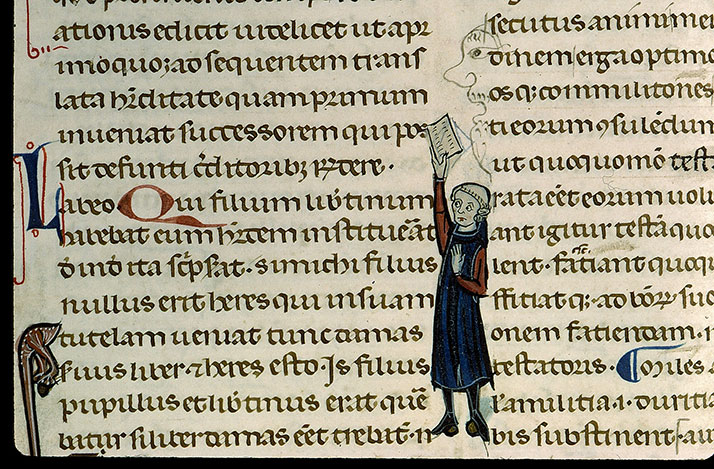 ationis edicit uidelicet ut apr
imo quoq; ad sequentem trans
lata h̄editate quam primum
inueniat successorem qui pos
sit defuncti c̄ditoribꝫ r̄ndere.
Labeo Qui filium lib̄tinum
habebat eum h̄edem instituēat
dīnd ita sc̄psat. si michi filius
nullus erit heres qui in suam
tutelam ueniat tunc damas
suus liber ⁊ heres esto. Is filius
pupillus et lib̄tinus erat quē
batur si liber damas eēt trebat̄. n
secutus animi mei
dinem erga optimo
osq; commilitones
ti eorum ꝯsulēdum
ut quoquomō test
rata eēt eorum uolu
ant igitur testā quo
lent. fatiant quoq;
ffitiat q; ad bōꝝ suo
onem fatiendam. n
testatoris. Miles
ra militia .i. duritia
bis substinent. au